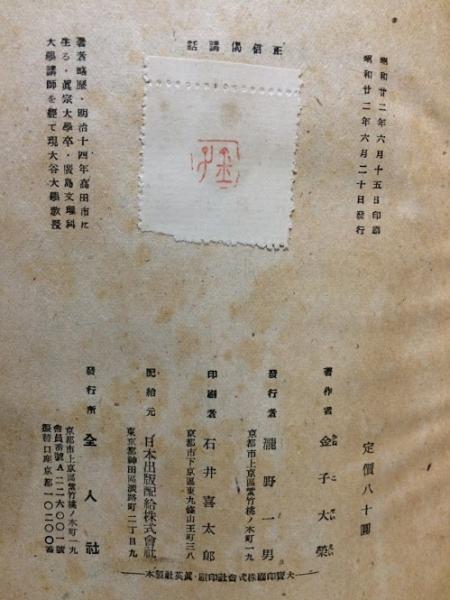 昭和廿二年六月十五日印刷
昭和廿二年六月二十日發行
正信偈講話
著者略歷・明治十四年高田市に
生る・眞宗大學卒・廣島文理科
大學講師を經て現大谷大學敎授
定價八十圓
著作者 金子大榮
かね こ だい えい
發行者 瀧野一男
京都市上京區紫竹桃ノ本町一九
印刷者 石井喜太郎
京都市下京區東九條山王町三八
配給元 日本出版配給株式會社
東京都神田區淡路町二丁目九
發行所 全人社
京都市上京區紫竹桃ノ本町一九
會員番號A二二六〇〇一號
振替口座京都一〇二〇〇番
大寶印刷株式會社印刷・眞英社製本